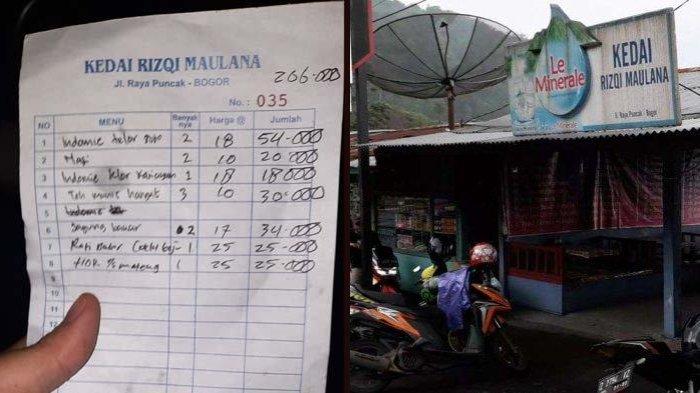 KEDAI RIZQI MAULANA
Jl. Raya Puncak - BOGOR
206.000
No. : 035
NO MENU Banyak nya Harga @ Jumlah
1 Indomie telor 2 18 54.000
2 Nasi 2 10 20.000
3 Indomie telor 1 18 18000
4 Teh manis hangat 3 10 30.000
5 Indomie
6 2 17 34.000
7 Roti Bakar 1 25 25.000
8 1 25 25.000
9
10
11
12
Le Minerale
KEDAI
RIZQI MAULANA
Jl. Raya Puncak - Bogor